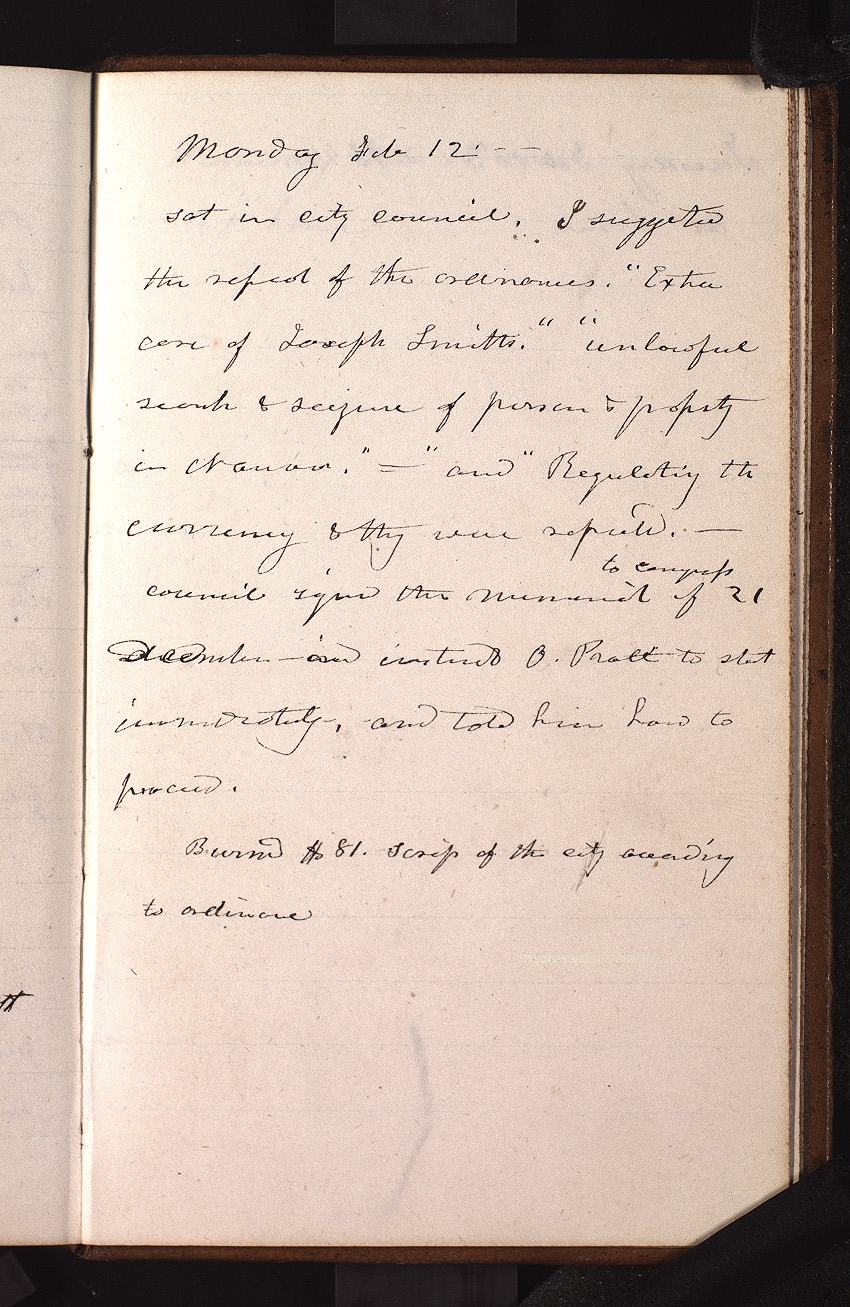 Monday Feb 12 - -
sat in city council. I suggested
the repeal of the ordinances. "Extra
case of Joseph Smiths." "unlawful
search & seizure of person & property
in Nauvoo." — " and " Regulating the
currency & they were repealed. —
to congress
council signed the memorial of 21
December and instructed O. Pratt to start
immediately, and told him how to
proceed.
Burned $81. scrip of the city according
to ordinance